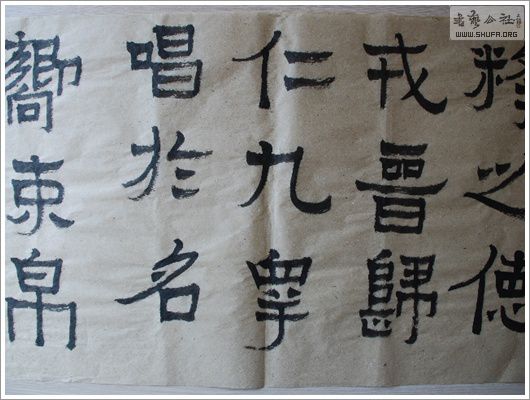 之德
戎歸
仁九
唱於名
嚮束帛
書藝公社
WWW.SHUFA.ORG